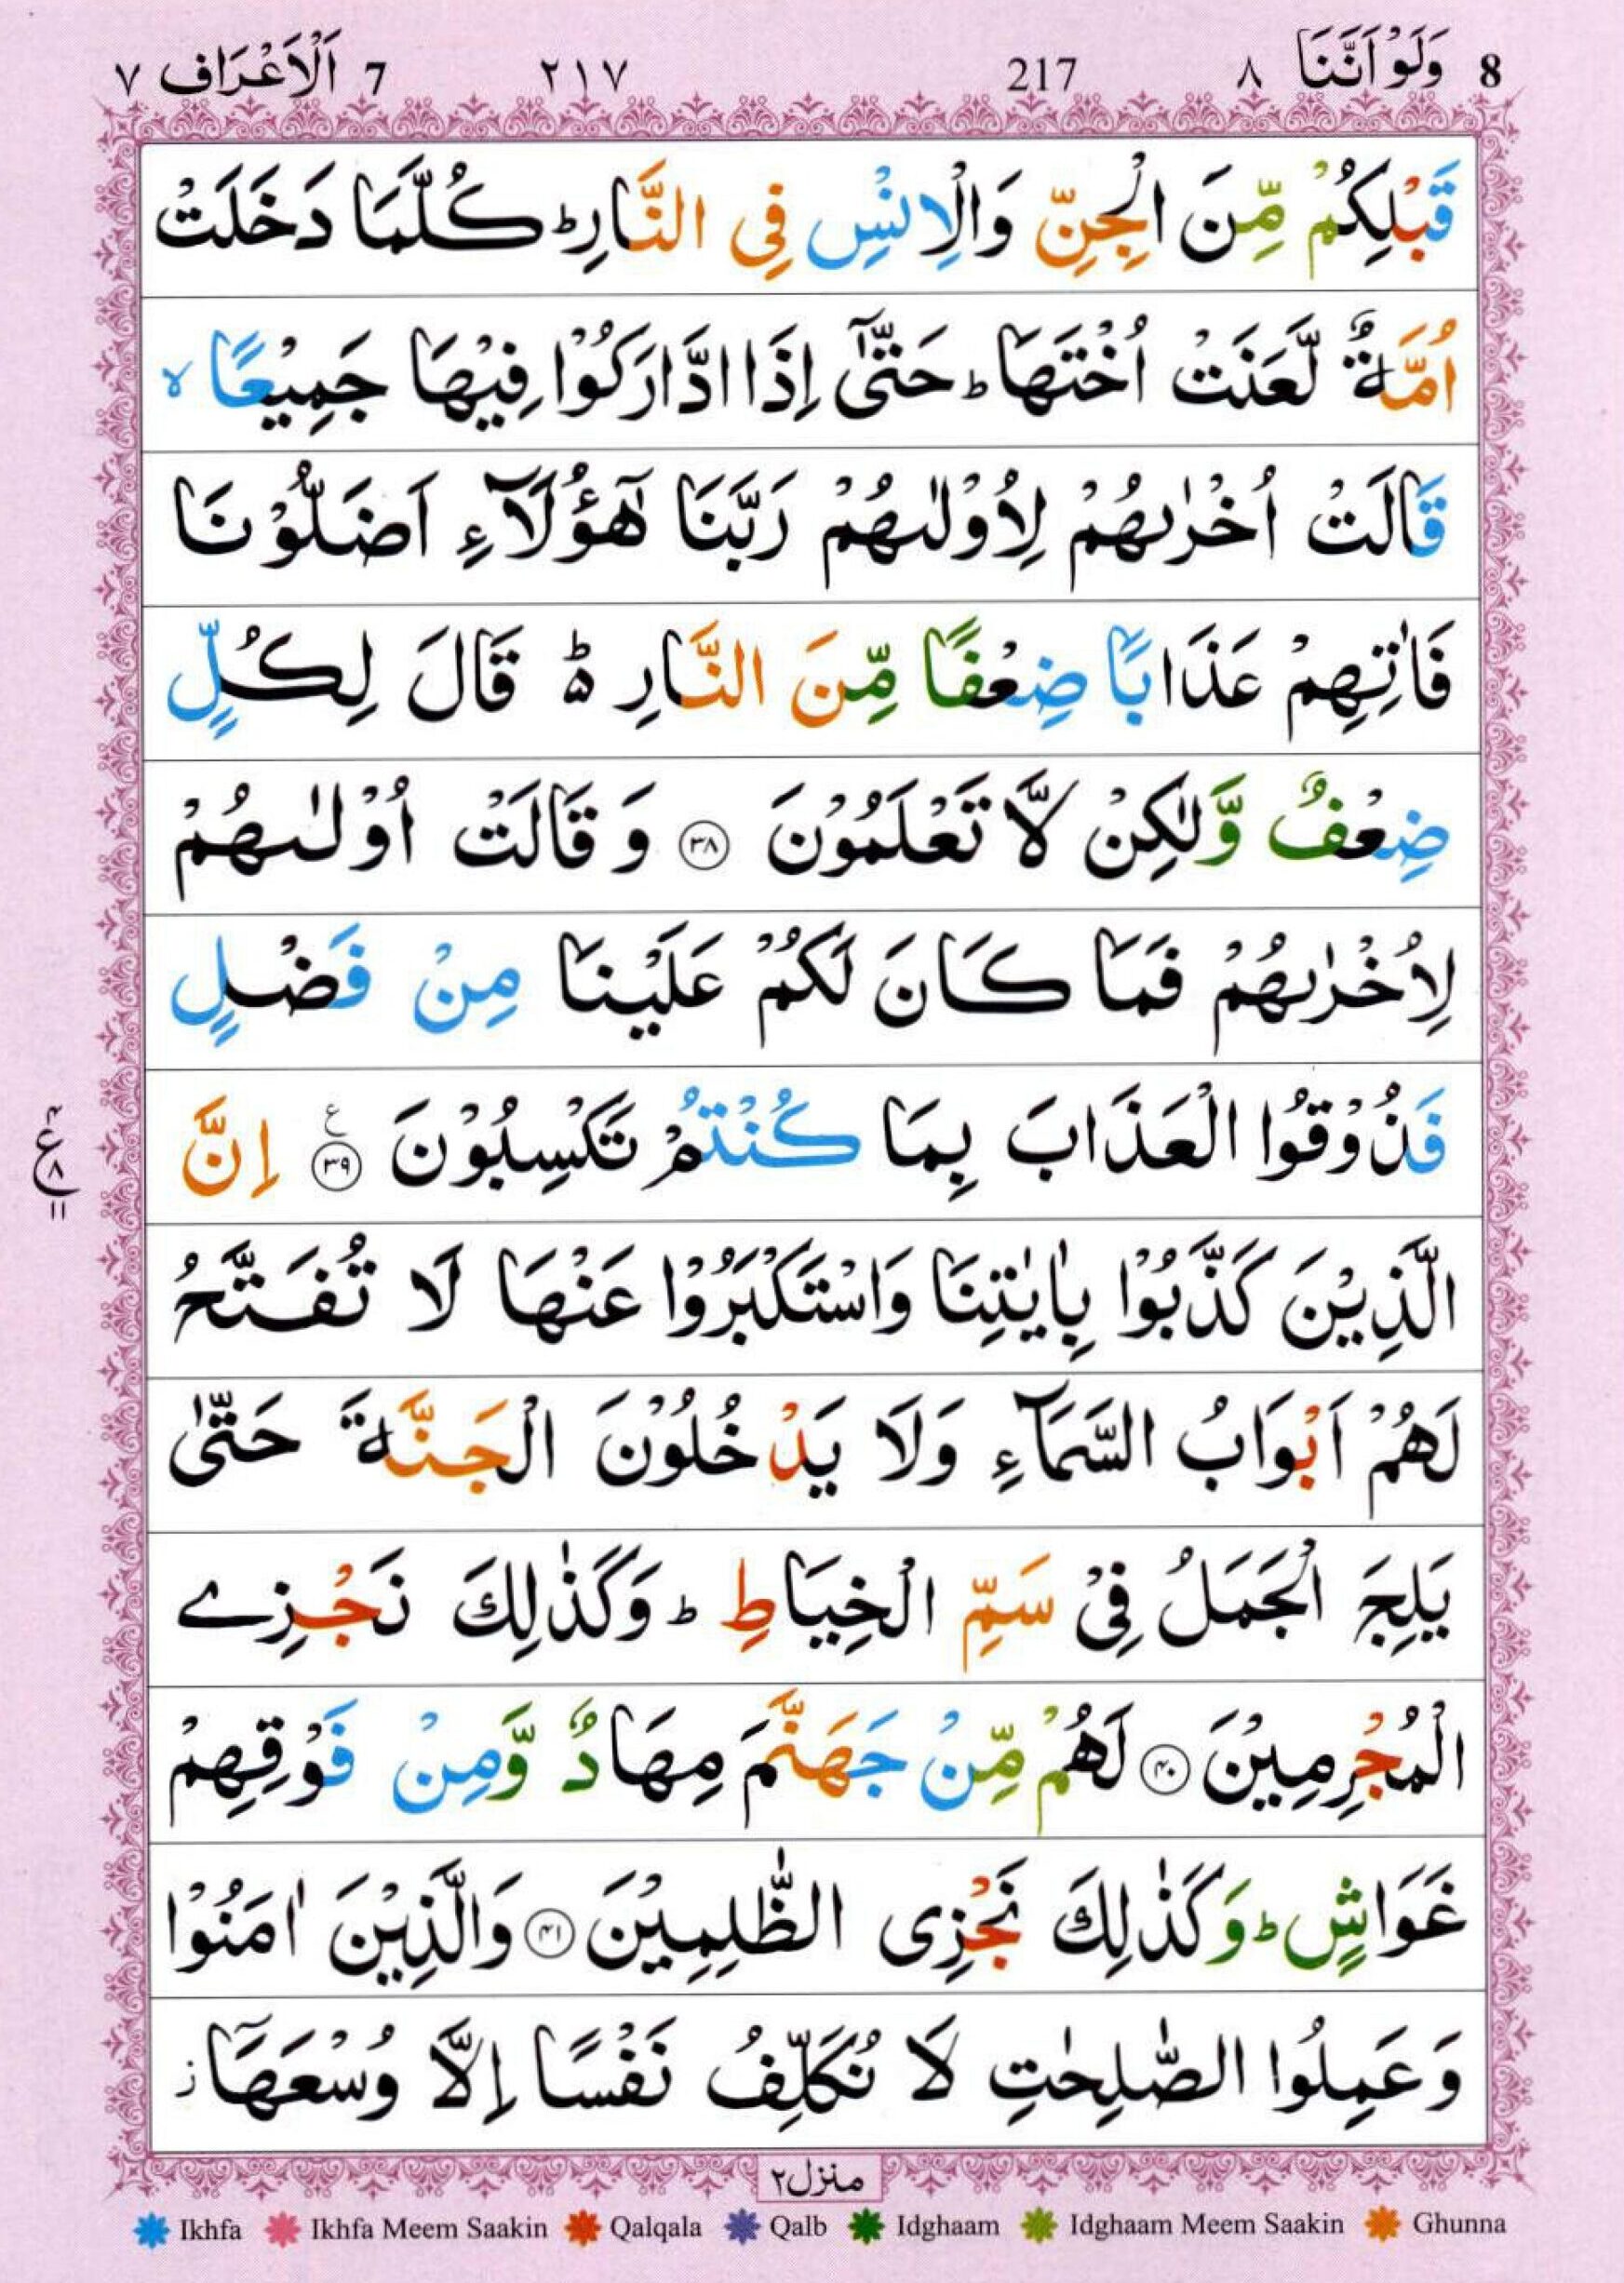 8 وَلَوْ اَنَّنَا ٨ 217 ٢١٧ 7 اَلْاَعْرَاف ٧
قَبْلِكُمْ مِّنَ الْجِنِّ وَالْاِنْسِ فِى النَّارِ ؕ كُلَّمَا دَخَلَتْ
اُمَّةٌ لَّعَنَتْ اُخْتَهَا ؕ حَتّٰٓى اِذَا ادَّارَكُوْا فِيْهَا جَمِيْعًا ۙ
قَالَتْ اُخْرٰىهُمْ لِاُوْلٰىهُمْ رَبَّنَا هٰٓؤُلَآءِ اَضَلُّوْنَا
فَاٰتِهِمْ عَذَابًا ضِعْفًا مِّنَ النَّارِ ؕ قَالَ لِكُلٍّ
ضِعْفٌ وَّلٰكِنْ لَّا تَعْلَمُوْنَ ﴿٣٨﴾ وَ قَالَتْ اُوْلٰىهُمْ
لِاُخْرٰىهُمْ فَمَا كَانَ لَكُمْ عَلَيْنَا مِنْ فَضْلٍ
فَذُوْقُوا الْعَذَابَ بِمَا كُنْتُمْ تَكْسِبُوْنَ ﴿٣٩﴾ ع اِنَّ
ع ٨ ١١
الَّذِيْنَ كَذَّبُوْا بِاٰيٰتِنَا وَاسْتَكْبَرُوْا عَنْهَا لَا تُفَتَّحُ
لَهُمْ اَبْوَابُ السَّمَآءِ وَلَا يَدْخُلُوْنَ الْجَنَّةَ حَتّٰى
يَلِجَ الْجَمَلُ فِىْ سَمِّ الْخِيَاطِ ؕ وَكَذٰلِكَ نَجْزِے
الْمُجْرِمِيْنَ ﴿٤٠﴾ لَهُمْ مِّنْ جَهَنَّمَ مِهَادٌ وَّمِنْ فَوْقِهِمْ
غَوَاشٍ ؕ وَكَذٰلِكَ نَجْزِى الظّٰلِمِيْنَ ﴿٤١﴾ وَالَّذِيْنَ اٰمَنُوْا
وَعَمِلُوا الصّٰلِحٰتِ لَا نُكَلِّفُ نَفْسًا اِلَّا وُسْعَهَاۤ ز
منزل٢
Ikhfa Ikhfa Meem Saakin Qalqala Qalb Idghaam Idghaam Meem Saakin Ghunna